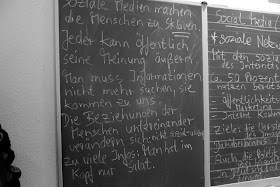 soziale Medien machen
die Menschen zu Sklaven.
Jeder kann öffentlich
seine Meinung äußern.
Man muss Informationen
nicht mehr suchen, sie
kommen zu uns.
Die Beziehungen der
Menschen untereinander
verändern sich:
zu viele Infos: Man hat im
Kopf nur Salat.
Social Media
& soziale Netz
Mit den sozia
des Internets
Ca. 50 Prozent
nutzen bereits
öffentlichkeit
Marketing
Internet
Ziele: die
Auch die